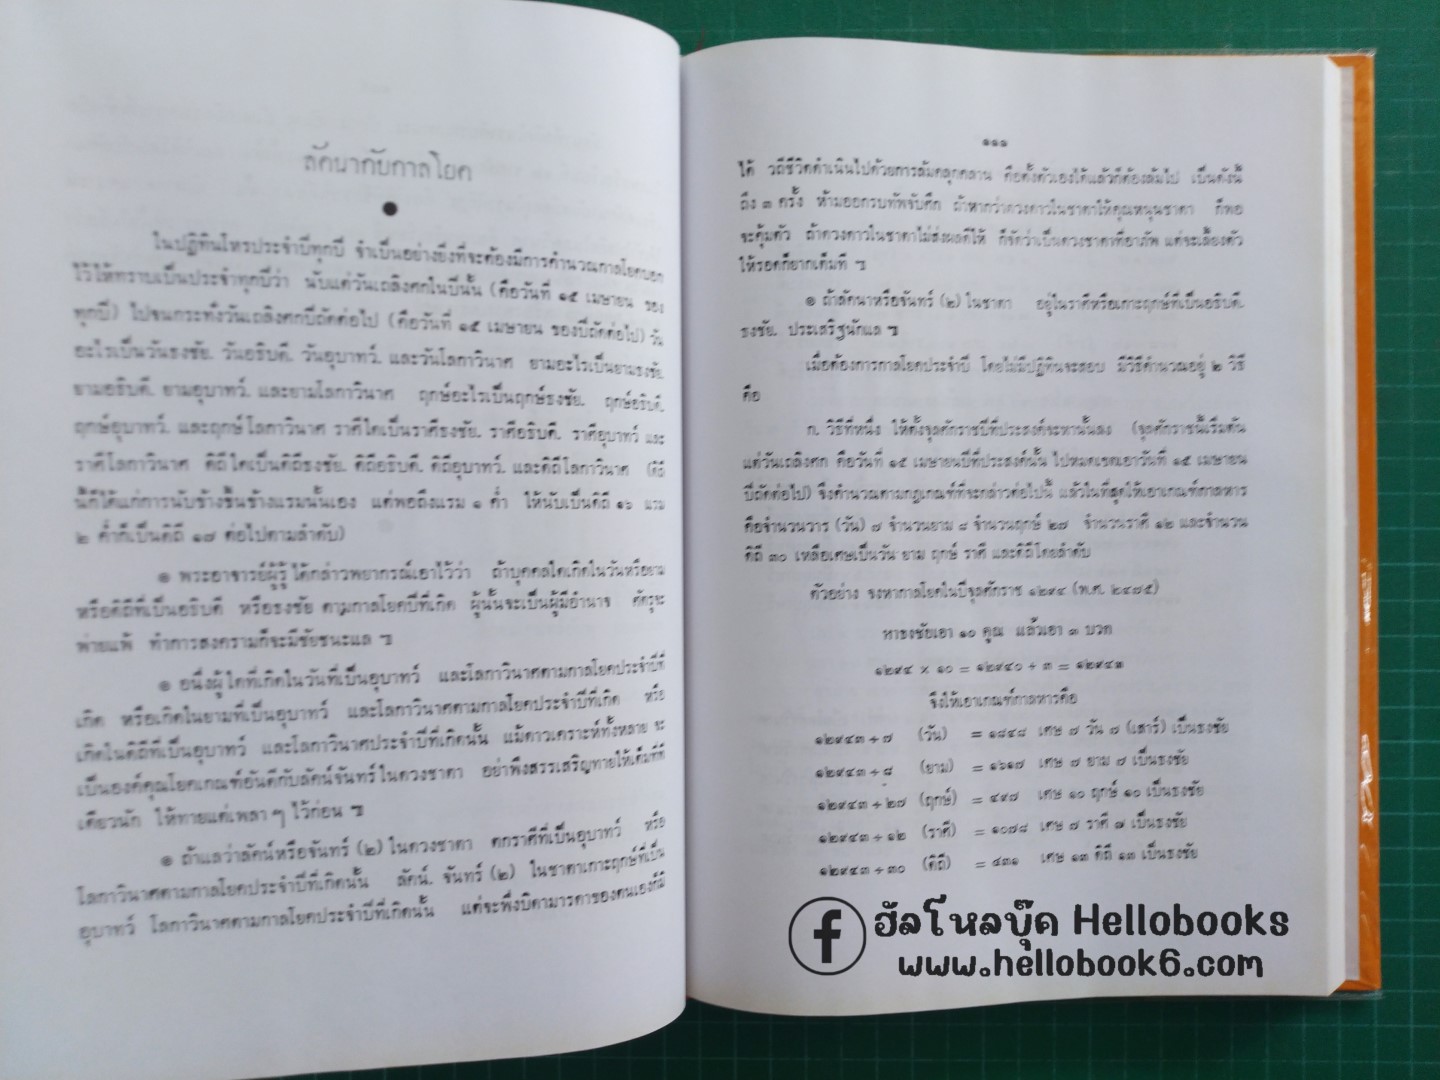 ลัคนากับกาลโยค
ในปฏิทินโหรประจำปีทุกปี จำเป็นอย่างยิ่งที่จะต้องมีการคำนวณกาลโยคบอก
ไว้ให้ทราบเป็นประจำทุกปีว่า นับแต่วันเถลิงศกในปีนั้น (คือวันที่ ๑๕ เมษายน ของ
ทุกปี) ไปจนกระทั่งวันเถลิงศกปีถัดต่อไป (คือวันที่ ๑๕ เมษายน ของปีถัดต่อไป) วัน
อะไรเป็นวันธงชัย. วันอธิบดี. วันอุบาทว์. และวันโลกาวินาศ ยามอะไรเป็นยามธงชัย.
ยามอธิบดี. ยามอุบาทว์. และยามโลกาวินาศ ฤกษ์อะไรเป็นฤกษ์ธงชัย. ฤกษ์อธิบดี.
ฤกษ์อุบาทว์. และฤกษ์โลกาวินาศ ราศีใดเป็นราศีธงชัย. ราศีอธิบดี. ราศีอุบาทว์ และ
ราศีโลกาวินาศ ดิถีใดเป็นดิถีธงชัย. ดิถีอธิบดี. ดิถีอุบาทว์. และดิถีโลกาวินาศ (ดิถี
นี้ก็ได้แก่การนับข้างขึ้นข้างแรมนั้นเอง แต่พอถึงแรม ๑ ค่ำ ให้นับเป็นดิถี ๑๖ แรม
๒ ค่ำก็เป็นดิถี ๑๗ ต่อไปตามลำดับ)
๏ พระอาจารย์ผู้รู้ได้กล่าวพยากรณ์เอาไว้ว่า ถ้าบุคคลใดเกิดในวันหรือยาม
หรือดิถีที่เป็นอธิบดี หรือธงชัย ตามกาลโยคปีที่เกิด ผู้นั้นจะเป็นผู้มีอำนาจ ศัตรูจะ
พ่ายแพ้ ทำการสงครามก็จะมีชัยชนะแล ฯ
๏ อนึ่งผู้ใดที่เกิดในวันที่เป็นอุบาทว์ และโลกาวินาศตามกาลโยคประจำปีที่
เกิด หรือเกิดในยามที่เป็นอุบาทว์ และโลกาวินาศตามกาลโยคประจำปีที่เกิด หรือ
เกิดในดิถีที่เป็นอุบาทว์ และโลกาวินาศประจำปีที่เกิดนั้น แม้ดาวเคราะห์ทั้งหลาย จะ
เป็นองค์คุณโยคเกณฑ์อันดีกับลัคน์จันทร์ในดวงชาตา อย่าพึงสรรเสริญทายให้เต็มที่ดี
เดียวนัก ให้ทายแต่เพลา ๆ ไว้ก่อน ฯ
๏ ถ้าแลว่าลัคน์หรือจันทร์ (๒) ในดวงชาตา ตกราศีที่เป็นอุบาทว์ หรือ
โลกาวินาศตามกาลโยคประจำปีที่เกิดนั้น ลัคน์. จันทร์ (๒) ในชาตาเกาะฤกษ์ที่เป็น
อุบาทว์ โลกาวินาศตามกาลโยคประจำปีที่เกิดนั้น แต่จะพึ่งบิดามารดาของตนเองก็มิ
๑๑๑
ได้ วถีชีวิตดำเนินไปด้วยการล้มคลุกคลาน คือตั้งตัวเองได้แล้วก็ต้องล้มไป เป็นดังนี้
ถึง ๓ ครั้ง ห้ามออกรบทัพจับศึก ถ้าหากว่าดวงดาวในชาตาให้คุณหนุนชาตา ก็พอ
จะคุ้มตัว ถ้าดวงดาวในชาตาไม่ส่งผลดีให้ ก็จัดว่าเป็นดวงชาตาที่อาภัพ แต่จะเลี้ยงตัว
ให้รอดก็ยากเต็มที ฯ
๏ ถ้าลัคนาหรือจันทร์ (๒) ในชาตา อยู่ในราศีหรือเกาะฤกษ์ที่เป็นอธิบดี.
ธงชัย. ประเสริฐนักแล ฯ
เมื่อต้องการกาลโยคประจำปี โดยไม่มีปฏิทินจะสอบ มีวิธีคำนวณอยู่ ๒ วิธี
คือ
ก. วิธีที่หนึ่ง ให้ตั้งจุลศักราชปีที่ประสงค์จะหานั้นลง (จุลศักราชนี้เริ่มต้น
แต่วันเถลิงศก คือวันที่ ๑๕ เมษายนปีที่ประสงค์นั้น ไปหมดเขตเอาวันที่ ๑๕ เมษายน
ปีถัดต่อไป) จึงคำนวณตามกฎเกณฑ์ที่จะกล่าวต่อไปนี้ แล้วในที่สุดให้เอาเกณฑ์กาลหาร
คือจำนวนวาร (วัน) ๗ จำนวนยาม ๘ จำนวนฤกษ์ ๒๗ จำนวนราศี ๑๒ และจำนวน
ดิถี ๓๐ เหลือเศษเป็นวัน ยาม ฤกษ์ ราศี และดิถีโดยลำดับ
ตัวอย่าง จงหากาลโยคในปีจุลศักราช ๑๒๙๔ (พ.ศ. ๒๔๗๕)
หาธงชัยเอา ๑๐ คูณ แล้วเอา ๓ บวก
๑๒๙๔ × ๑๐ = ๑๒๙๔๐ + ๓ = ๑๒๙๔๓
จึงให้เอาเกณฑ์กาลหารคือ
๑๒๙๔๓ ÷ ๗ (วัน) = ๑๘๔๘ เศษ ๗ วัน ๗ (เสาร์) เป็นธงชัย
๑๒๙๔๓ ÷ ๘ (ยาม) = ๑๖๑๗ เศษ ๗ ยาม ๗ เป็นธงชัย
๑๒๙๔๓ ÷ ๒๗ (ฤกษ์) = ๔๗๙ เศษ ๑๐ ฤกษ์ ๑๐ เป็นธงชัย
๑๒๙๔๓ ÷ ๑๒ (ราศี) = ๑๐๗๘ เศษ ๗ ราศี ๗ เป็นธงชัย
๑๒๙๔๓ ÷ ๓๐ (ดิถี) = ๔๓๑ เศษ ๑๓ ดิถี ๑๓ เป็นธงชัย
ฮัลโหลบุ๊ค Hellobooks
www.hellobook6.com